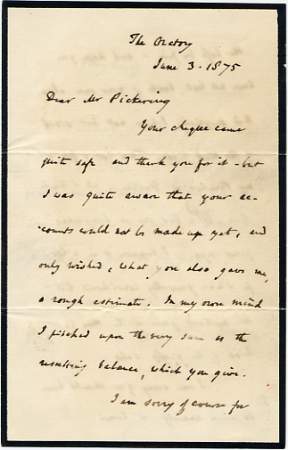 The Oratory
June 3. 1875
Dear Mr Pickering
Your cheque came
quite safe and thank you for it - but
I was quite aware that your ac-
-counts could not be made up yet, and
only wished, what you also gave me,
a rough estimate. In my own mind
I pitched upon the very sum as the
resulting balance, which you give.
I am sorry of course for